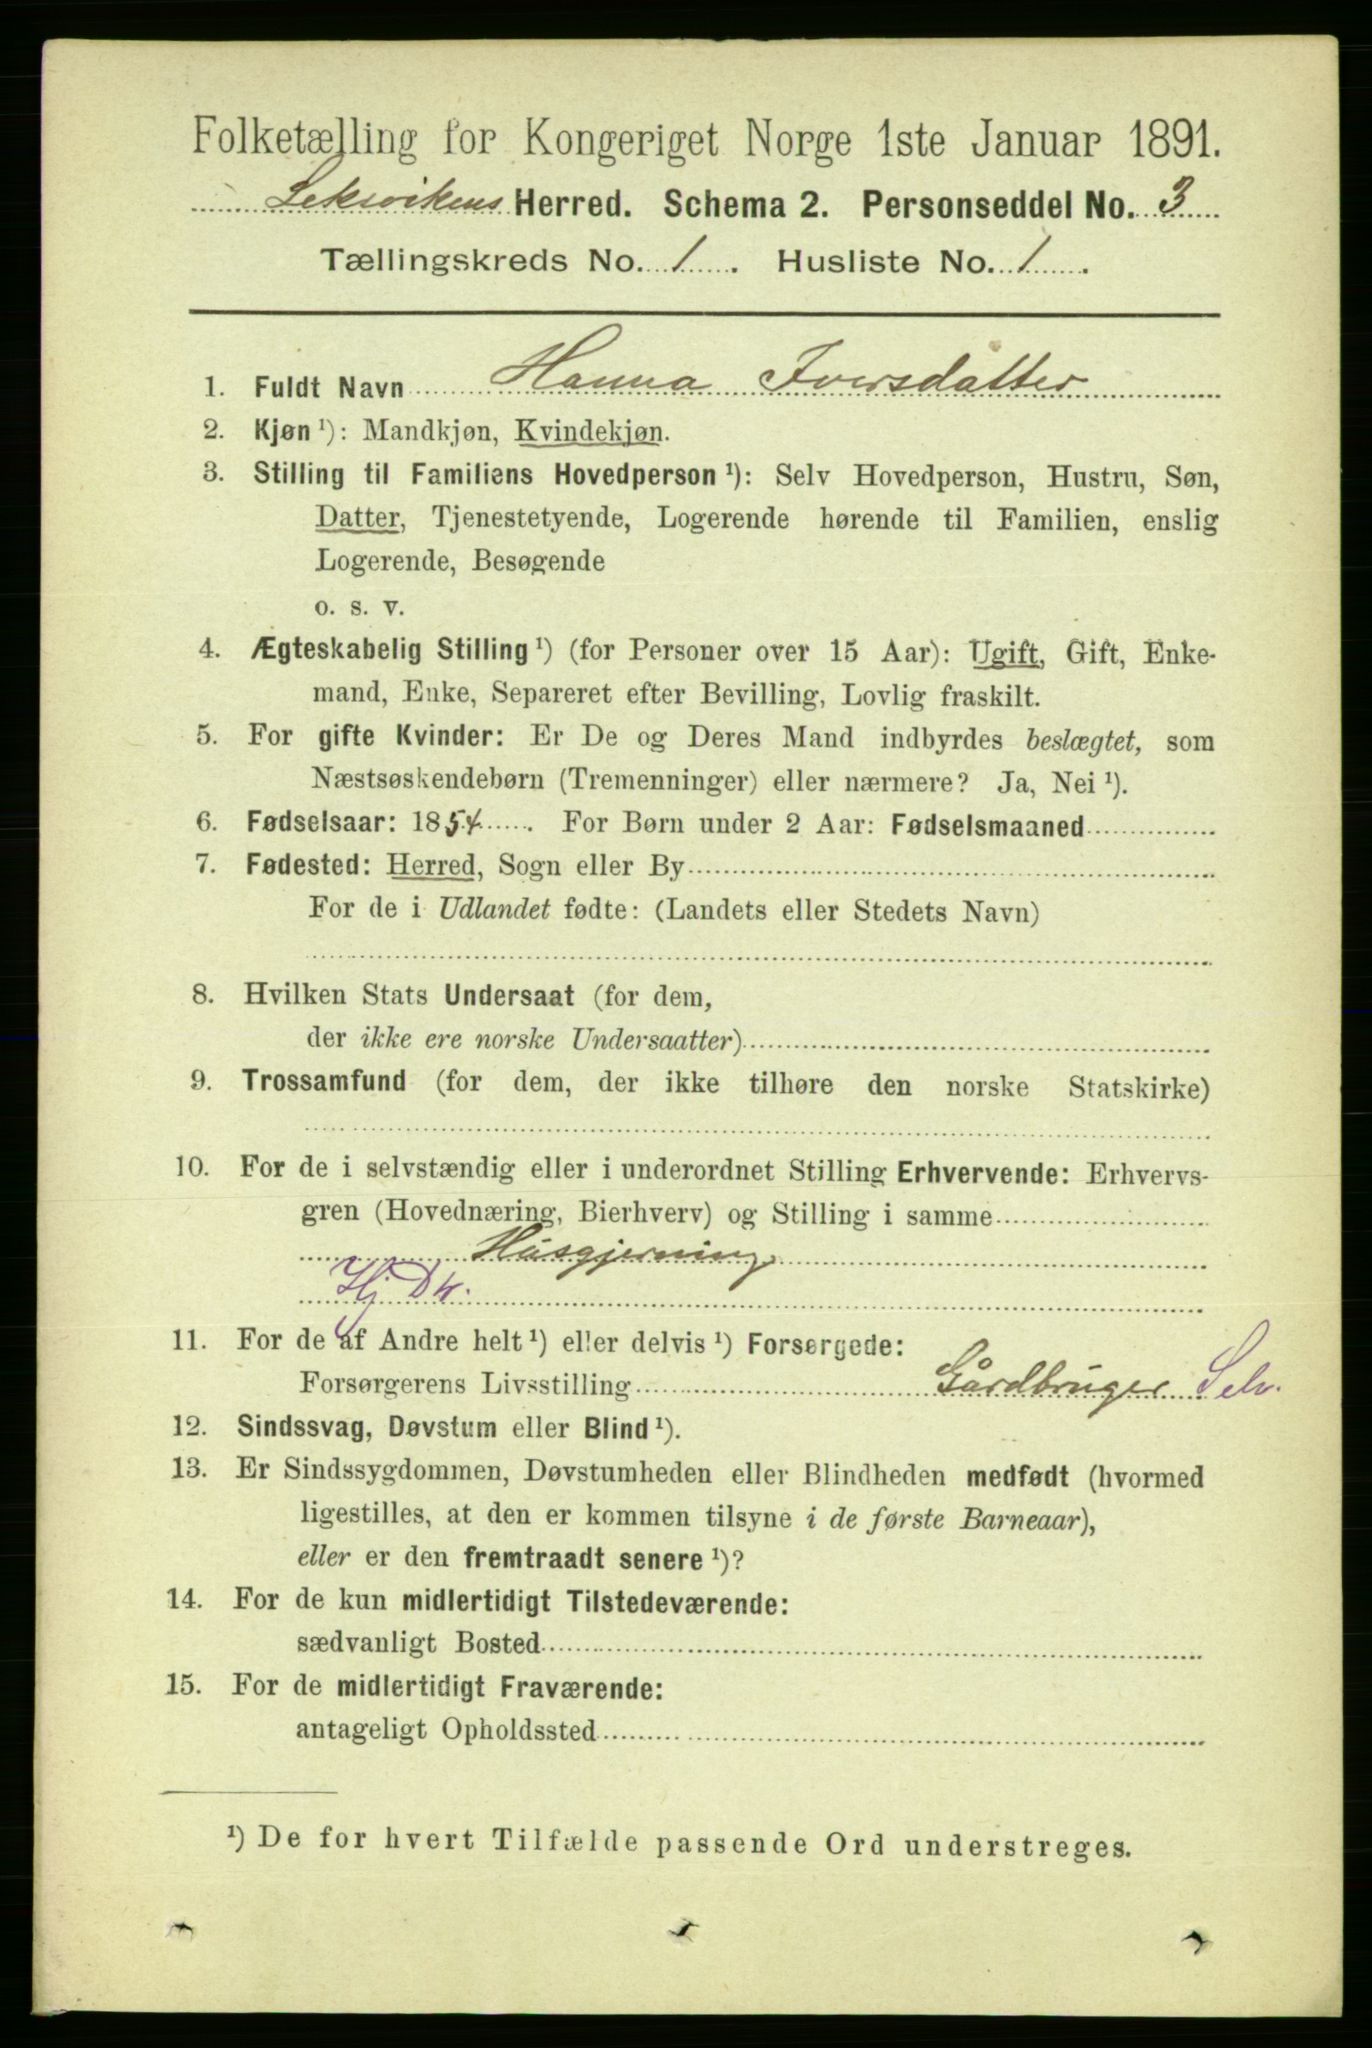 Folketælling for Kongeriget Norge 1ste Januar 1891.
Leksvikens Herred. Schema 2. Personseddel No. 3
Tællingskreds No. 1. Husliste No. 1.
1. Fuldt Navn Hanna Iversdatter
2. Kjøn ¹): Mandkjøn, Kvindekjøn.
3. Stilling til Familiens Hovedperson ¹): Selv Hovedperson, Hustru, Søn,
Datter, Tjenestetyende, Logerende hørende til Familien, enslig
Logerende, Besøgende
o. s. v.
4. Ægteskabelig Stilling ¹) (for Personer over 15 Aar): Ugift, Gift, Enke-
mand, Enke, Separeret efter Bevilling, Lovlig fraskilt.
5. For gifte Kvinder: Er De og Deres Mand indbyrdes beslægtet, som
Næstsøskendebørn (Tremenninger) eller nærmere? Ja, Nei ¹).
6. Fødselsaar: 1854. For Børn under 2 Aar: Fødselsmaaned
7. Fødested: Herred, Sogn eller By
For de i Udlandet fødte: (Landets eller Stedets Navn)
8. Hvilken Stats Undersaat (for dem,
der ikke ere norske Undersaatter)
9. Trossamfund (for dem, der ikke tilhøre den norske Statskirke)
10. For de i selvstændig eller i underordnet Stilling Erhvervende: Erhvervs-
gren (Hovednæring, Bierhverv) og Stilling i samme
Husgjerning
Hj Dtr.
11. For de af Andre helt ¹) eller delvis ¹) Forsørgede:
Forsørgerens Livsstilling Gårdbruger Selv.
12. Sindssvag, Døvstum eller Blind ¹).
13. Er Sindssygdommen, Døvstumheden eller Blindheden medfødt (hvormed
ligestilles, at den er kommen tilsyne i de første Barneaar),
eller er den fremtraadt senere ¹)?
14. For de kun midlertidigt Tilstedeværende:
sædvanligt Bosted
15. For de midlertidigt Fraværende:
antageligt Opholdssted
¹) De for hvert Tilfælde passende Ord understreges.